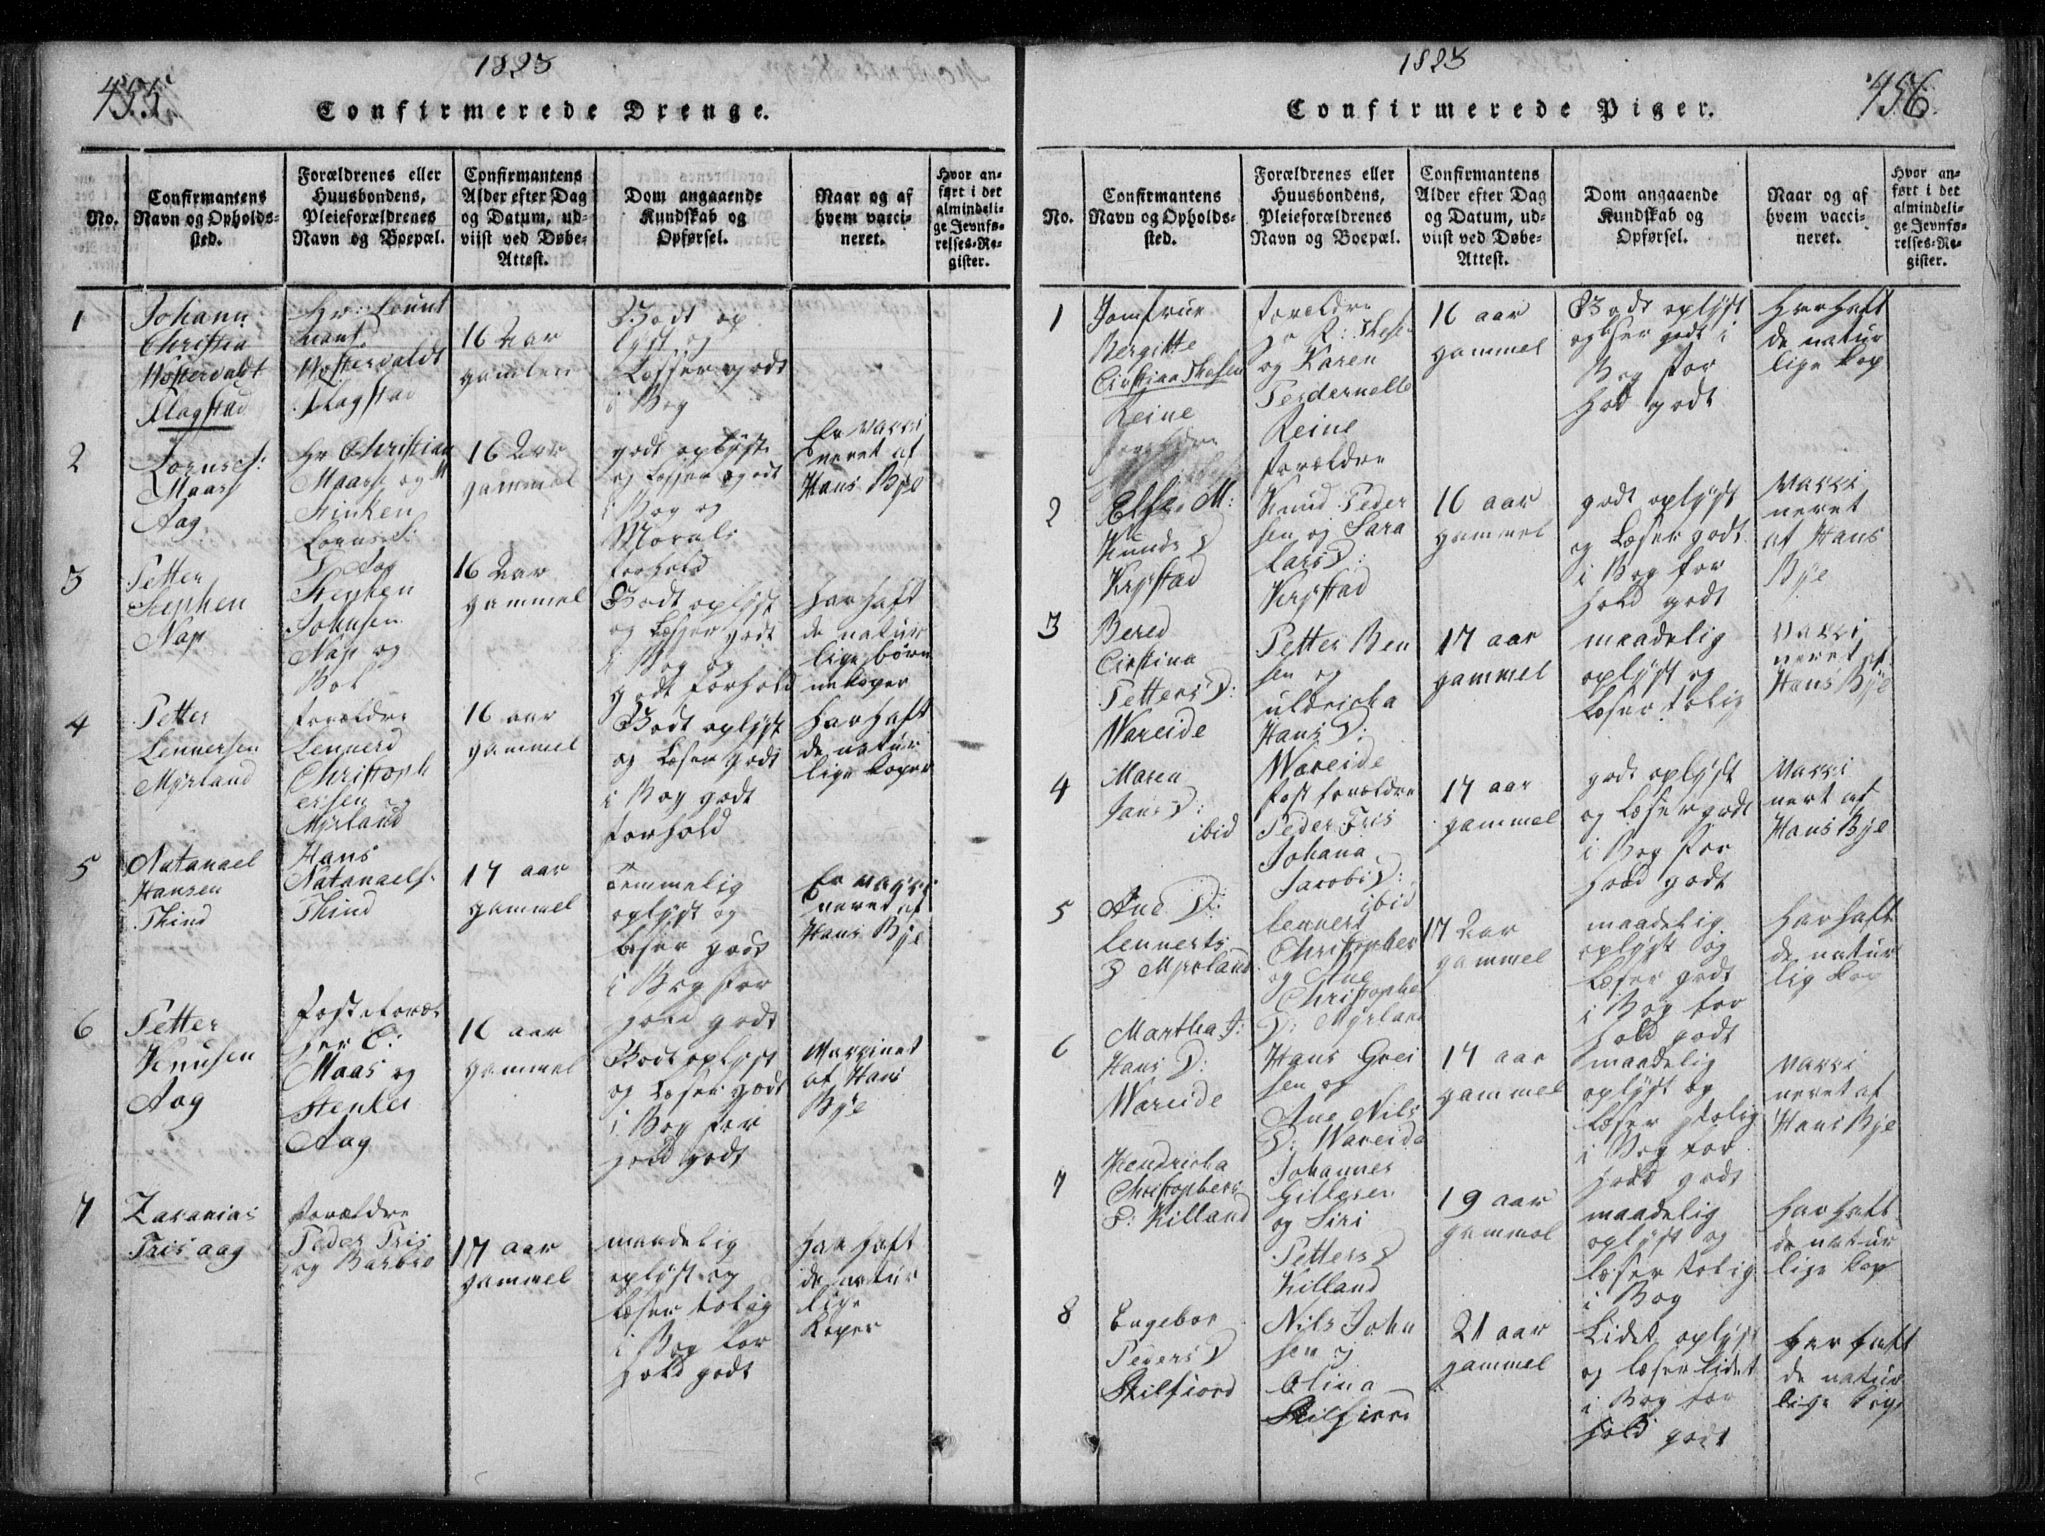 455
1823
Confirmerede Drenge.
No.
Confirmantens
Navn og Opholds-
sted.
Forældrenes eller
Huusbondens,
Pleieforældrenes
Navn og Boepæl.
Confirmantens
Alder efter Dag
og Datum, ud-
viist ved Døbe-
Attest.
Dom angaaende
Kundskab og
Opførsel.
Naar og af
hvem vacci-
neret.
Hvor an-
ført i det
almindeli-
ge Jevnfø-
relses-Re-
gister.
1
Johann
Christia
Flagstad
Hr:
Flagstad
16 Aar
gamlen
Godt op
lyst og
Læsser godt
i Bog
2
Maass
Aag
Hr Christian
Maass og
16 Aar
gammel
godt oplyst
og Læsser godt
i Bog og
Morals
forhold
Er vacci
neret af
Hans Bye
3
Petter
Stephen
Nap
Stephen
Johnsen
Nap og
16 Aar
gammel
Godt oplyst
og Læsser godt
i Bog og
godt forhold
har haft
de natur
lige børn
nekoper
4
Petter
Lennersen
Myrland
forældre
Lennerd
Christoph
ersen og
Myrland
16 aar
gammel
Godt oplyst
og Læser godt
i Bog godt
forhold
har haft
de natur
lige koper
5
Natanael
Hansen
Thind
Hans
Natanaels:
Thind
17 aar
gammel
Temmelig
oplyst og
læser godt
i Bog for
hold godt
Er vacci
neret af
Hans Bye
6
Petter
Knusen
Aag
Herr C:
Maas og
Aag
16 aar
gammel
Godt oplyst
og Læser godt
i Bog for
hold godt
af Hans
Bye
7
Zacarias
Friis aag
forældre
Peder Friis
og Barbro
17 aar
gammel
maadelig
oplyst og
læser tolig
i Bog for
hold godt
har haft
de natur
lige
Koper
1823
456
Confirmerede Piger.
No.
Confirmantens
Navn og Opholds-
sted.
Forældrenes eller
Huusbondens,
Pleieforældrenes
Navn og Boepæl.
Confirmantens
Alder efter Dag
og Datum, ud-
viist ved Døbe-
Attest.
Dom angaaende
Kundskab og
Opførsel.
Naar og af
hvem vacci-
neret.
Hvor an-
ført i det
almindeli-
ge Jevnfø-
relses-Re-
gister.
1
Jomfrue
Bergitte
Reine
forældre
og Karen
Pedernelle
Reine
16 aar
gammel
Godt oplyst
og læser godt i
Bog for
hold godt
Har haft
de natur
lige kop
2
Else M:
Knuds D
Krystad
forældre
Knud Peder
sen og Sara
Lars D:
Krystad
16 aar
gammel
godt oplyst
og Læser godt
i Bog for
hold godt
vacci
neret
af Hans
Bye
3
Bered
Cirstina
Petters D:
Wareide
Petter Ben
sen og
uldricka
Hans D:
Wareide
17 aar
gammel
maadelig
oplyst og
læser tolig
vacci
neret af
Hans Bye
4
Maren
Jans D:
ibid
fost forældre
Peder Friis
Johana
Jacobs D:
ibid
17 aar
gammel
godt oplyst
og læser godt
i Bog for
hold godt
vacci
nert af
Hans Bye
5
Ane D:
Lennerts
D Myrland
Lennerd
Christopher
og Ane
Christophe
D: Myrland
17 Aar
gammel
maadelig
oplyst og
læser godt
i Bog for
hold godt
har haft
de natur
lig kop
6
Martha J:
Hans D:
Wareide
Hans Grei
sen og
Ane Nils
D: Wareide
17 aar
gammel
maadelig
oplyst og
læser tolig
i Bog for
hold godt
vacci
neret af
Hans Bye
7
Hendricka
Christophers
D: Killand
Johannes
Gillesen
og Siri
Petters D
Killand
19 aar
gammel
maadelig
oplyst og
læser tolig
i Bog
har haft
de natur
lige kop
8
Engebor
Peders D
Skilfiord
Nils John
sen og
Olina
Skilfiord
21 aar
gammel
Lidet oplyst
og læser lidet
i Bog for
hold godt
har haft
de natur
lige kop